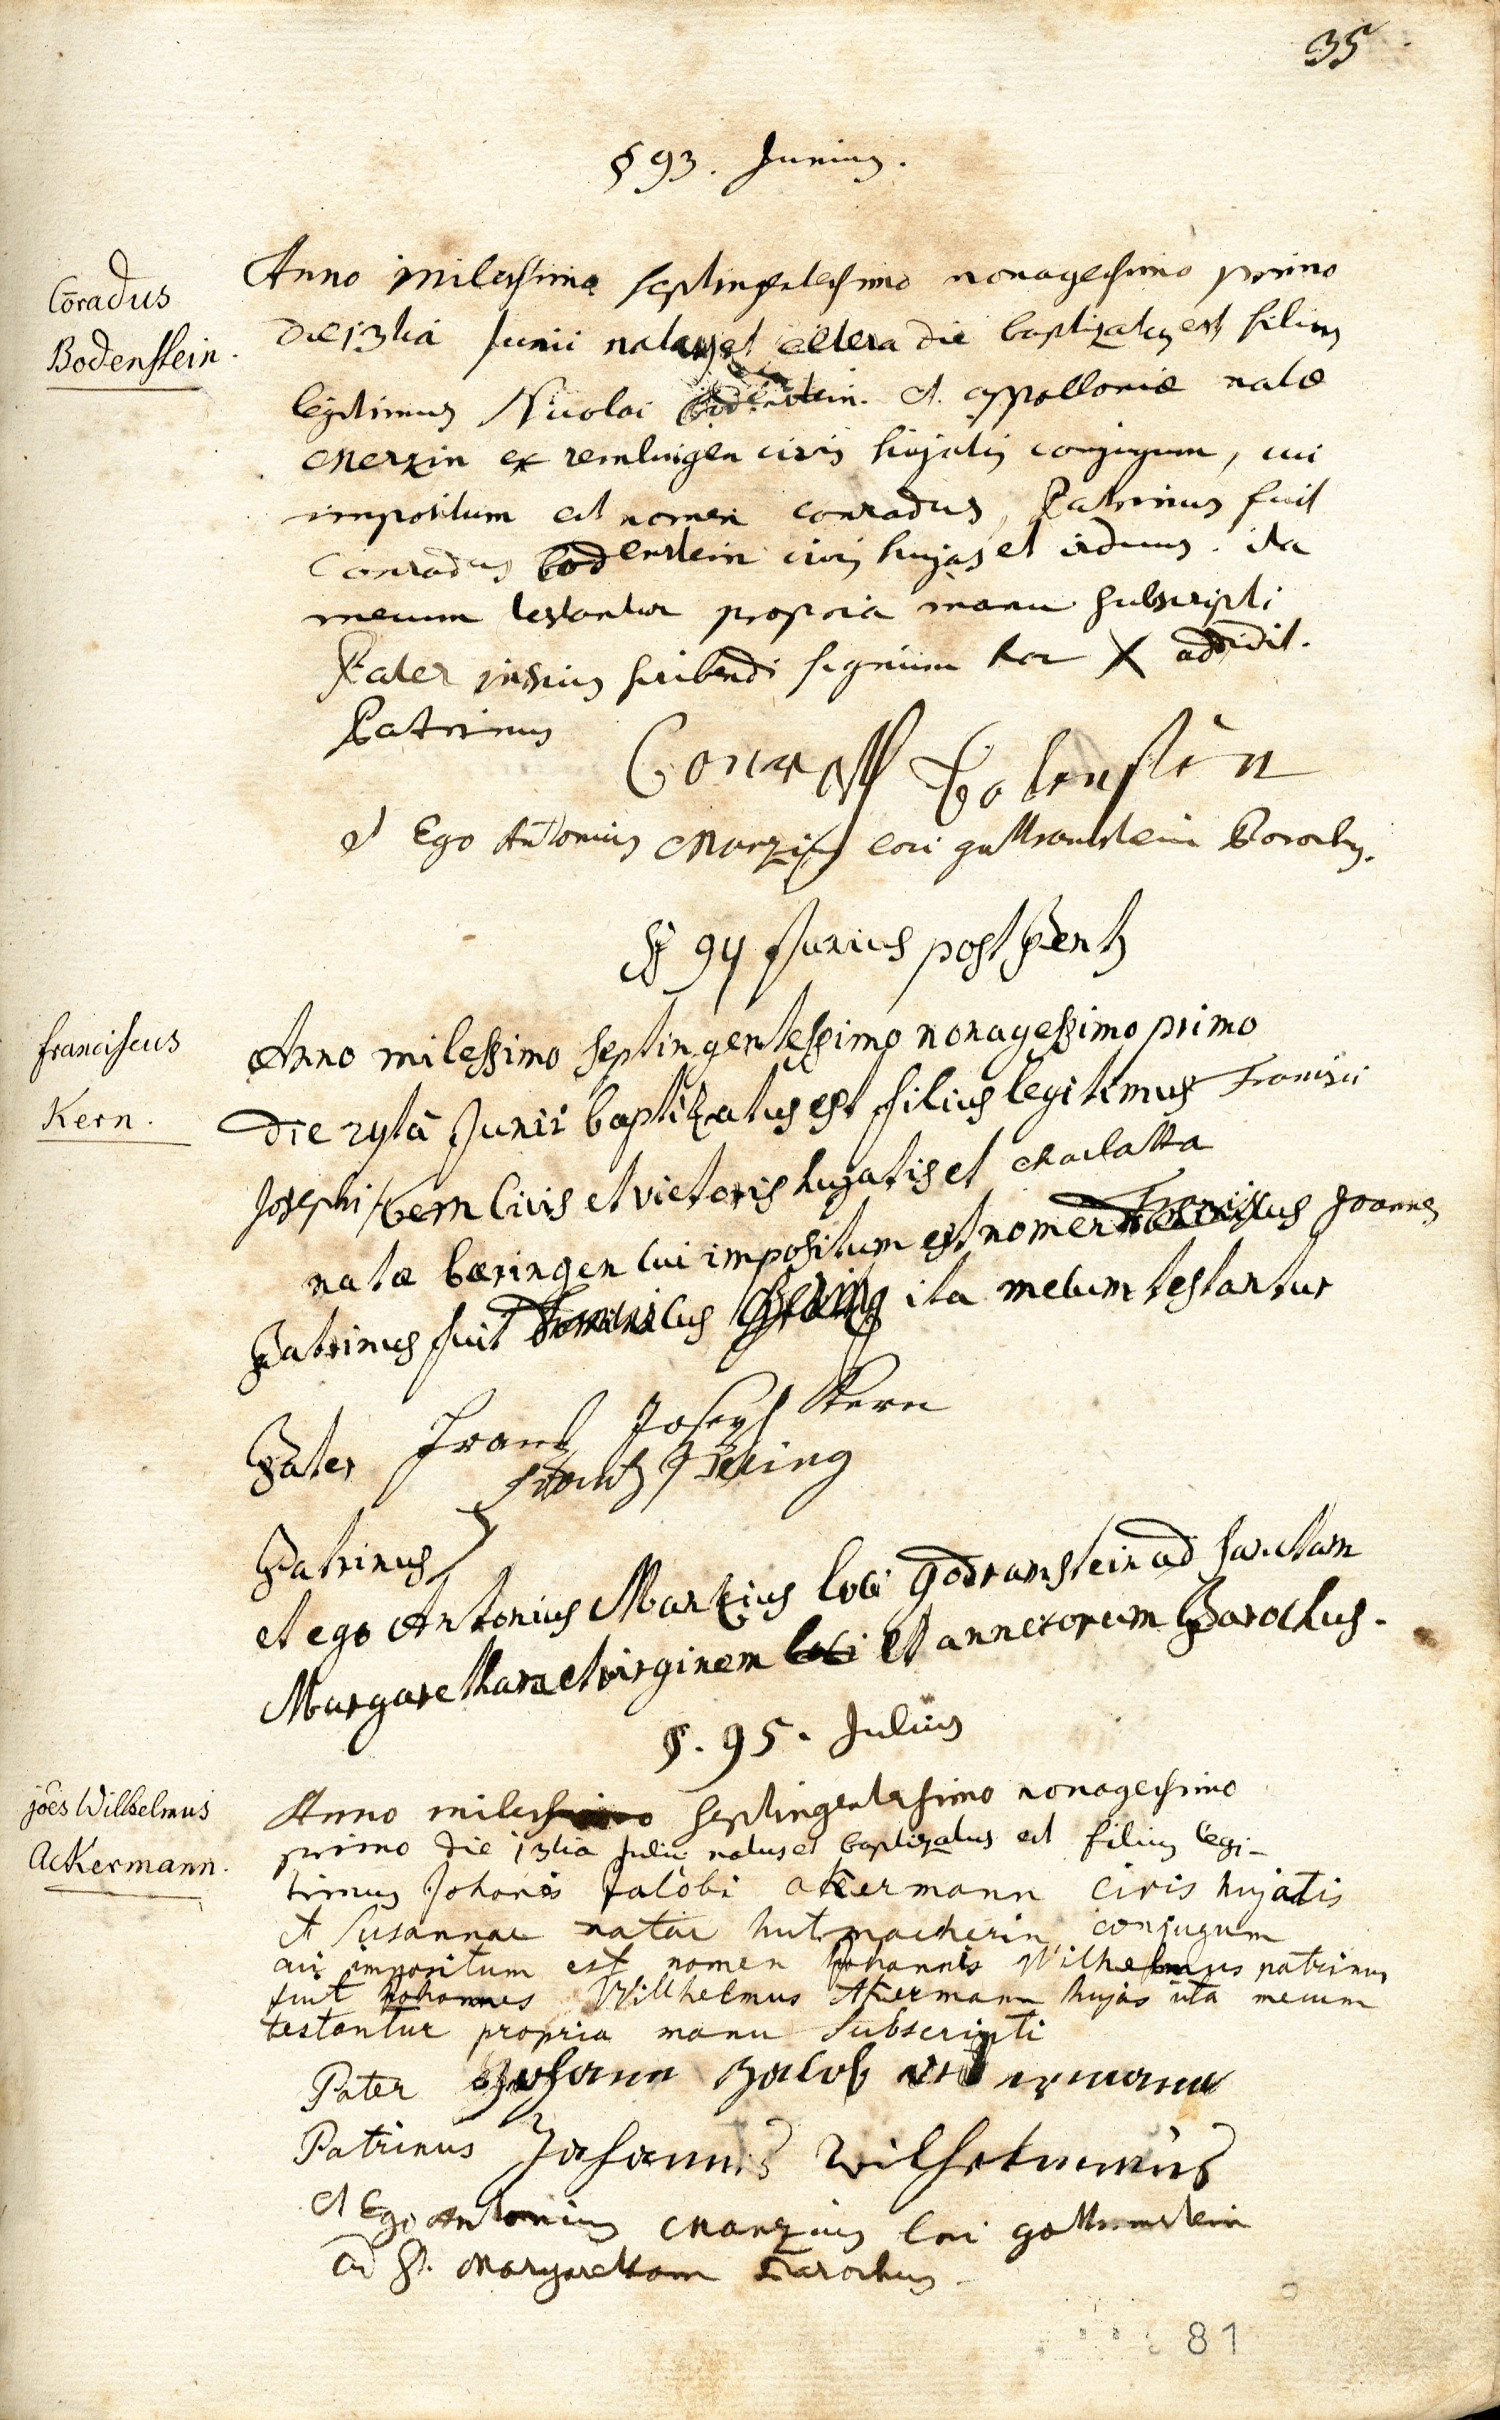 35
§ 93. Junius.
Cōradus
Bodenstein.
Anno milessimo septingentessimo nonagessimo primo
die 13tiâ Junii natus et altera die baptizatus est filius
legitimus Nicolai Bodenstein. et appolloniæ natæ
Merzin ex remlingen civis hujatis conjugum, cui
impositum est nomen conradus, Patrinus fuit
Conradus bodenstein civis hujas et viduus. ita
mecum testantur propria manu subscripti
Pater inscius scribendi signum hoc X addidit.
Patrinus
et Ego Antonius Marzius loci gottramstein Parochus.
§ 94 Junius post Pent
Franciscus
Kern.
Anno milessimo septingentessimo nonagessimo primo
Die 24tâ Junii baptizatus est filius legitimus Francisci
Josephi Kern Civis et victoris hujatis et charlatta
natæ bæringen Cui impositum est nomen Franciscus Joannes
Patrinus fuit ita mecum testantur
Pater Frantz Joseph Kern
Frantz Bering
Patrinus
et ego Antonius Marzius loci godramstein ad sanctam
Margaretham et virginem loci et annexorum Parochus.
§. 95. Julius
jōes Wilhelmus
Ackermann.
Anno milessimo septingentessimo nonagessimo
primo die 13tia Julii natus et baptizatus est filius legi-
timus Johanis Jacobi akermann civis hujatis
et Susannae natae hutmacherin conjugum
cui impositum est nomen Johannis Wilhelmus patrinus
fuit Johannes Willhelmus Akermann hujas ita mecum
testantur propria manu Subscripti
Pater Johann Jacob ackermann
Patrinus Johannes Wilhelmmus
et Ego Antonius Marzius loci gottramstein
ad St. Margaretham Parochus
81